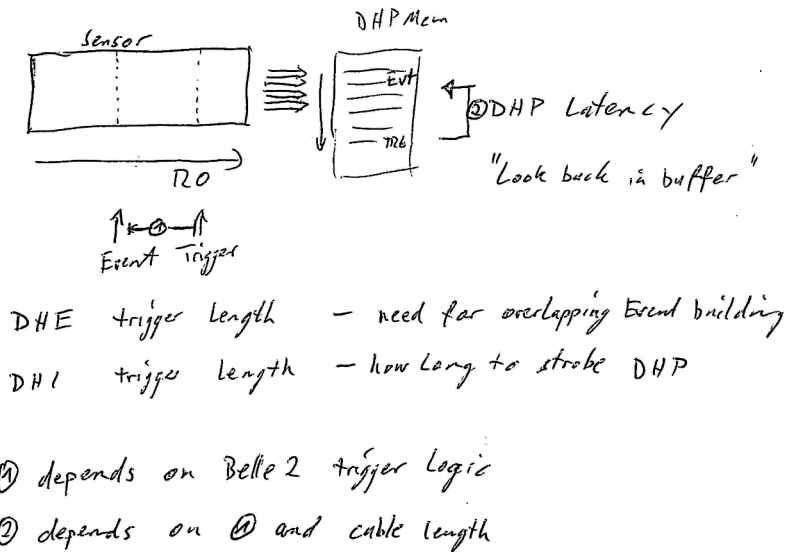 DHP Mem
Sensor
Evt
TRG
② DHP Latency
"Look back in buffer"
RO
①
Event Trigger
DHE trigger length — need for overlapping Event building
DHI trigger length — how long to strobe DHP
① depends on Belle 2 trigger logic
② depends on ① and cable length